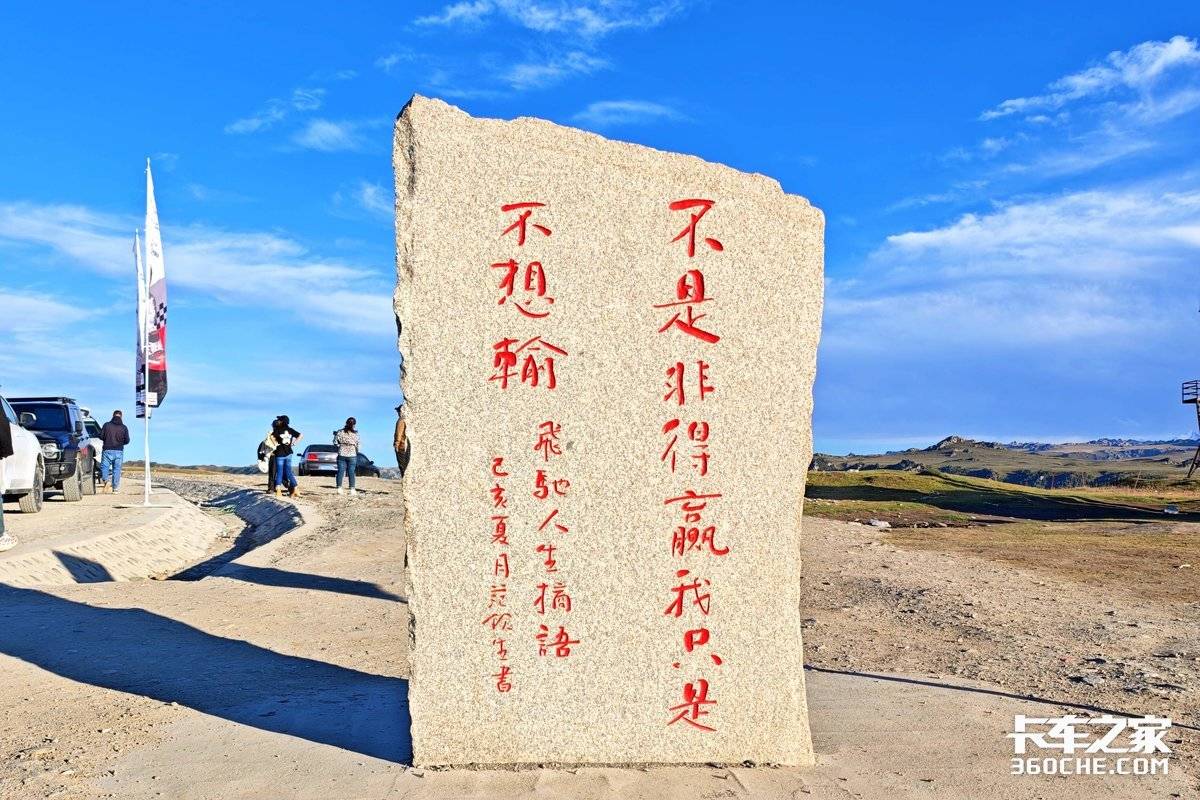 不是非得赢我只是
不想輸
飛馳人生摘語
己亥夏月范欽生書
卡车之家
360CHE.COM